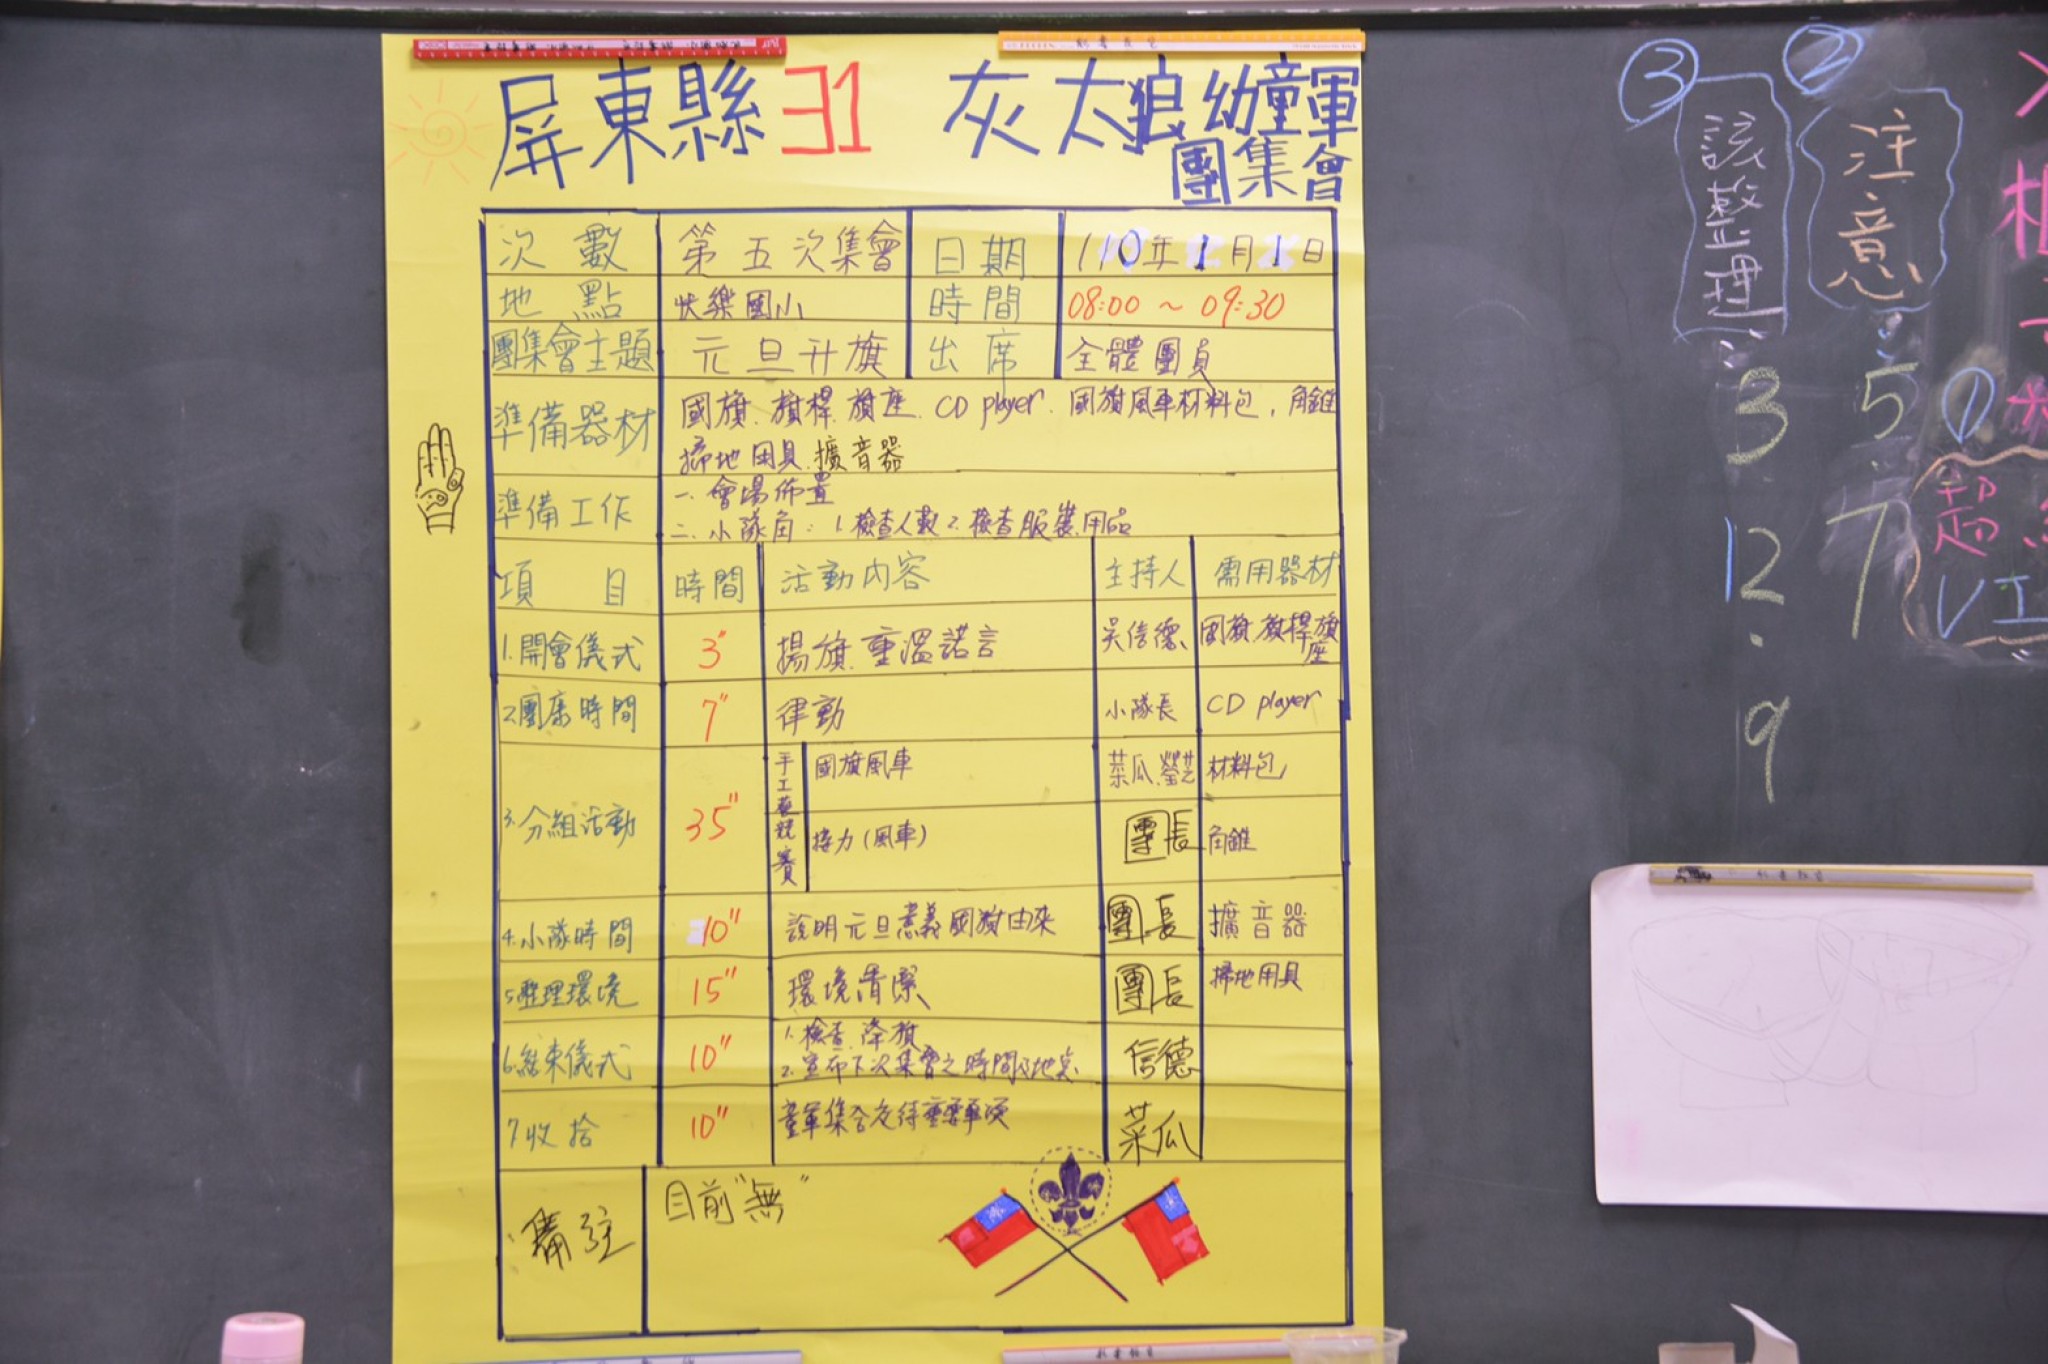 屏東縣31 灰太狼幼童軍
團集會
次數 第五次集會 日期 110年1月1日
地點 快樂國小 時間 08:00 ~ 09:30
團集會主題 元旦升旗 出席 全體團員
準備器材 國旗.旗桿.旗座.CD player.國旗風車材料包.角錐
掃地用具.擴音器
準備工作 一.會場佈置
二.小隊角:1.檢查人數2.檢查服裝.用品
項目 時間 活動內容 主持人 需用器材
1.開會儀式 3" 揚旗.重溫諾言 吳信德 國旗.旗桿旗座
2.團康時間 7" 律動 小隊長 CD player
3.分組活動 35" 手工藝競賽 國旗風車 菜瓜.瑩芝 材料包
接力(風車) 團長 角錐
4.小隊時間 10" 說明元旦意義國旗由來 團長 擴音器
5.整理環境 15" 環境清潔 團長 掃地用具
6.結束儀式 10" 1.檢查.降旗
2.宣布下次集會之時間及地點 信德
7.收拾 10" 童軍集合交待重要事項 菜瓜
備註 目前"無"
③ 該整理
3
12
9
② 注意
5
7
①
超